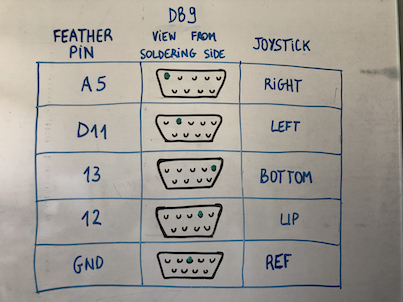 DB9
FEATHER PIN
VIEW FROM SOLDERING SIDE
JOYSTICK
A5 RIGHT
D11 LEFT
13 BOTTOM
12 UP
GND REF